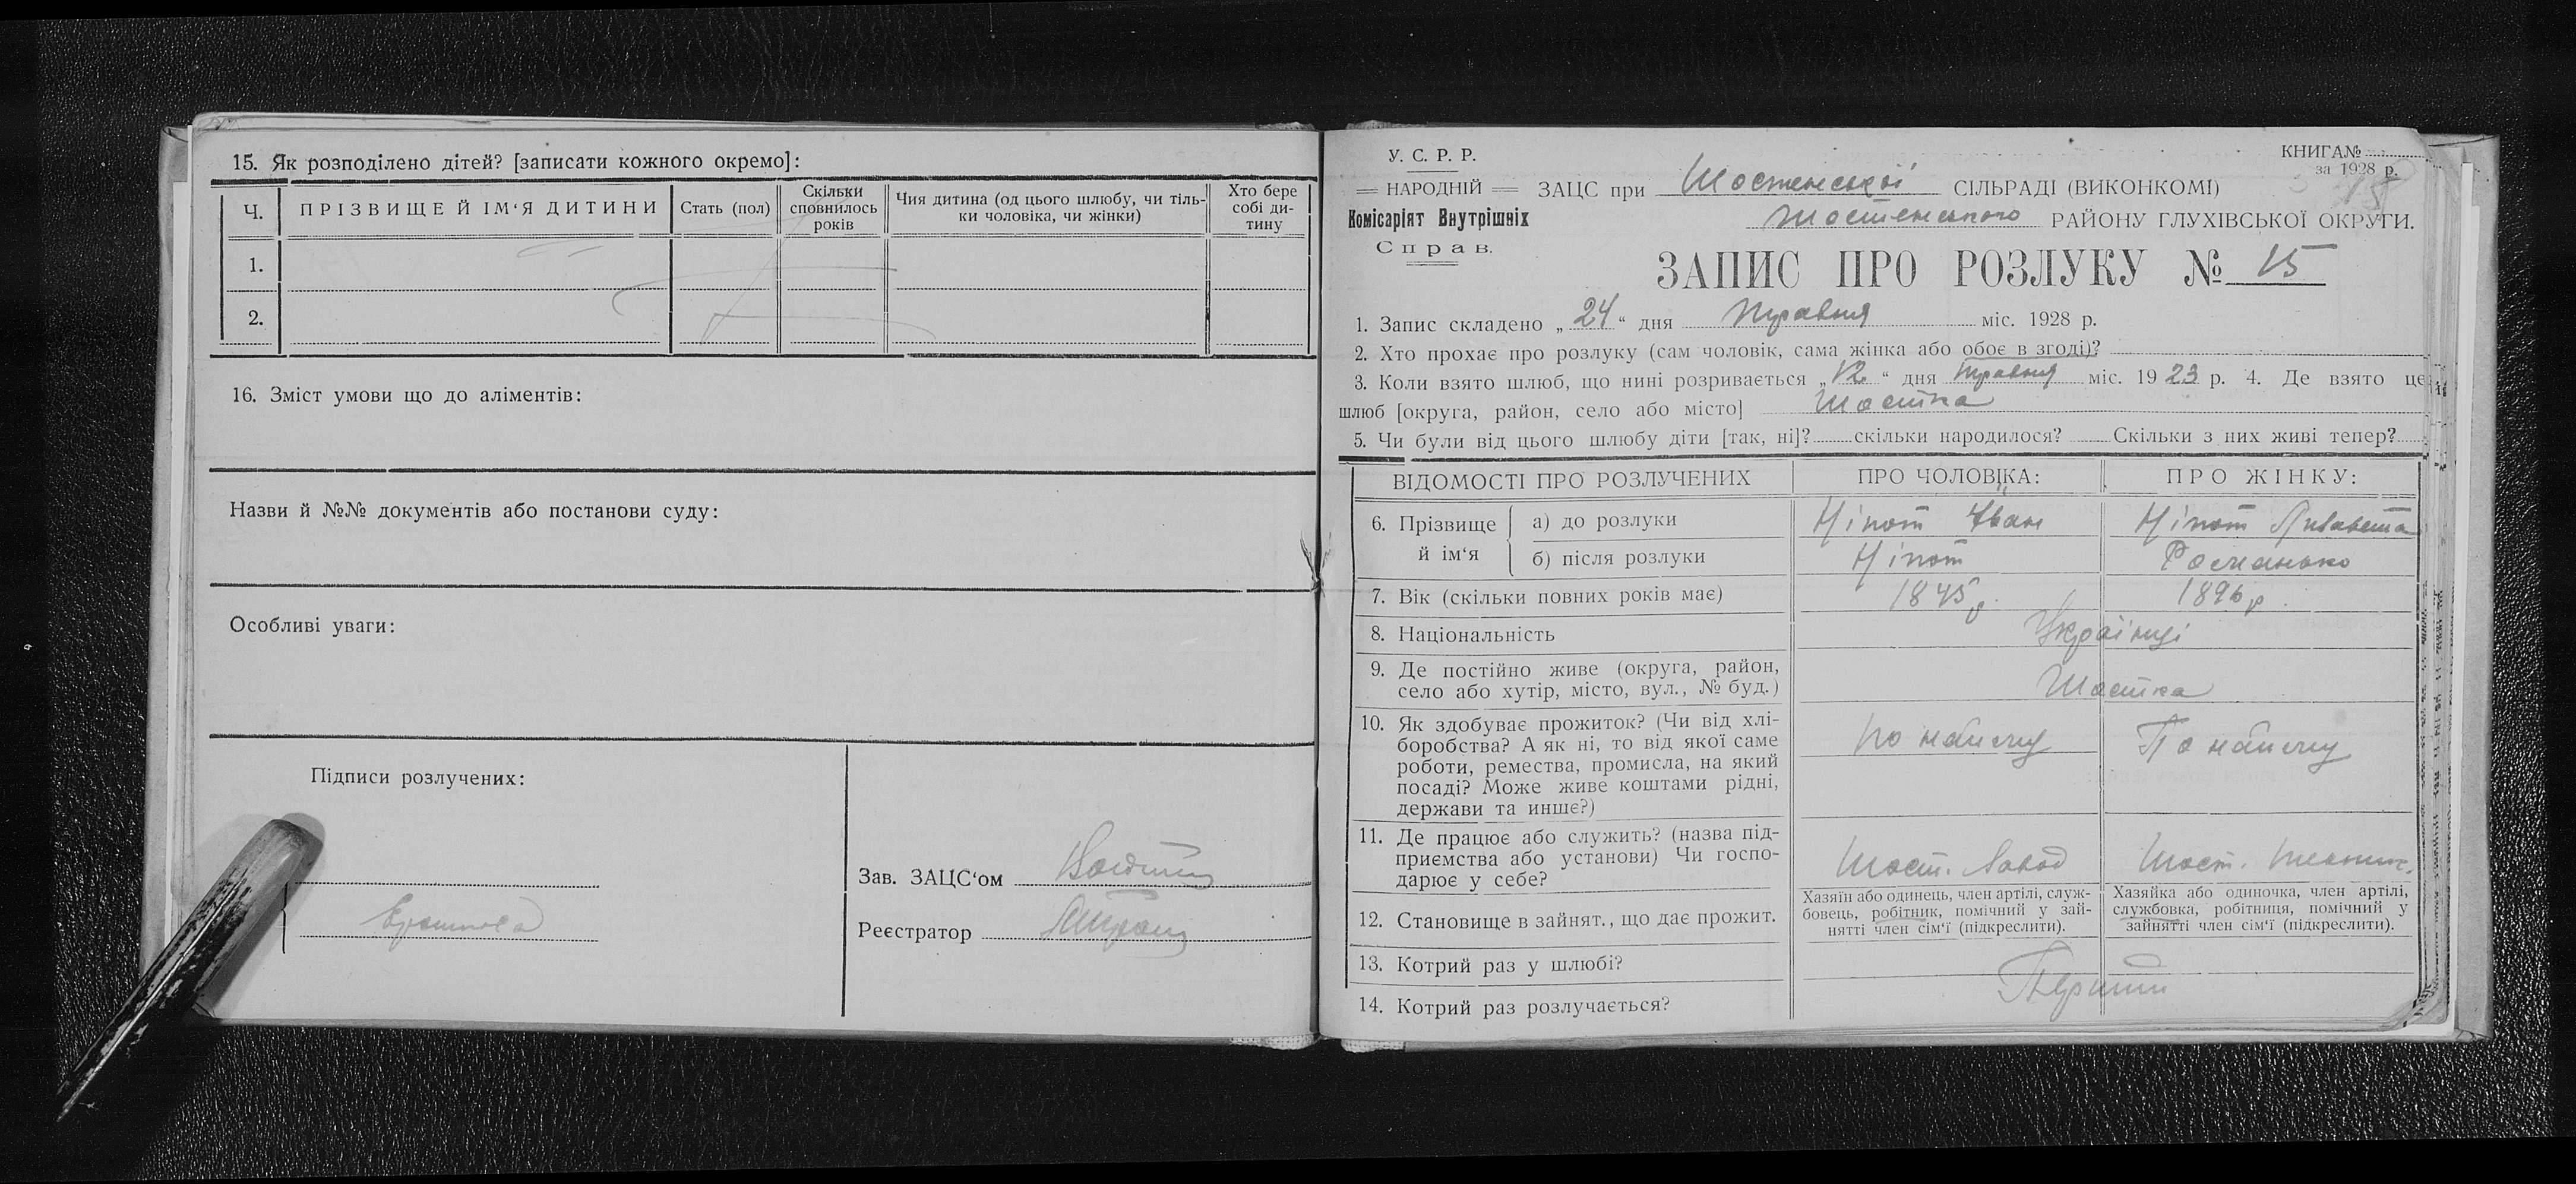 15. Як розподілено дітей? [записати кожного окремо]:
Ч. ПРІЗВИЩЕ Й ІМ‘Я ДИТИНИ Стать (пол) Скільки сповнилось років Чия дитина (од цього шлюбу, чи тіль-ки чоловіка, чи жінки) Хто бере собі ди-тину
1.
2.
16. Зміст умови що до аліментів:
Назви й №№ документів або постанови суду:
Особливі уваги:
Підписи розлучених:
Зав. ЗАЦС‘ом
Реєстратор
У. С. Р. Р.
НАРОДНІЙ
Комісаріят Внутрішніх
Справ.
КНИГА№
за 1928 р.
ЗАЦС при Шостенської СІЛЬРАДІ (ВИКОНКОМІ)
Шостенського РАЙОНУ ГЛУХІВСЬКОЇ ОКРУГИ.
ЗАПИС ПРО РОЗЛУКУ № 15
1. Запис складено „24“ дня Травня міс. 1928 р.
2. Хто прохає про розлуку (сам чоловік, сама жінка або обоє в згоді)?
3. Коли взято шлюб, що нині розривається „12“ дня травня міс. 1923 р. 4. Де взято це
шлюб [округа, район, село або місто] Шостка
5. Чи були від цього шлюбу діти [так, ні]? скільки народилося? Скільки з них живі тепер?
ВІДОМОСТІ ПРО РОЗЛУЧЕНИХ ПРО ЧОЛОВІКА: ПРО ЖІНКУ:
6. Прізвище й ім‘я
а) до розлуки Ніпот Іван Ніпот Лизавета
б) після розлуки Ніпот
7. Вік (скільки повних років має) 1896 р.
8. Національність Українці
9. Де постійно живе (округа, район,
село або хутір, місто, вул., № буд.) Шостка
10. Як здобуває прожиток? (Чи від хлі-
боробства? А як ні, то від якої саме
роботи, ремества, промисла, на який
посаді? Може живе коштами рідні,
держави та инше?)
По найму По найму
11. Де працює або служить? (назва під-
приємства або установи) Чи госпо-
дарює у себе?
Шост. Завод Шост.
12. Становище в зайнят., що дає прожит.
Хазяїн або одинець, член артілі, служ-
бовець, робітник, помічний у зай-
нятті член сім‘ї (підкреслити).
Хазяйка або одиночка, член артілі,
службовка, робітниця, помічний у
зайнятті член сім‘ї (підкреслити).
13. Котрий раз у шлюбі?
Перший
14. Котрий раз розлучається?